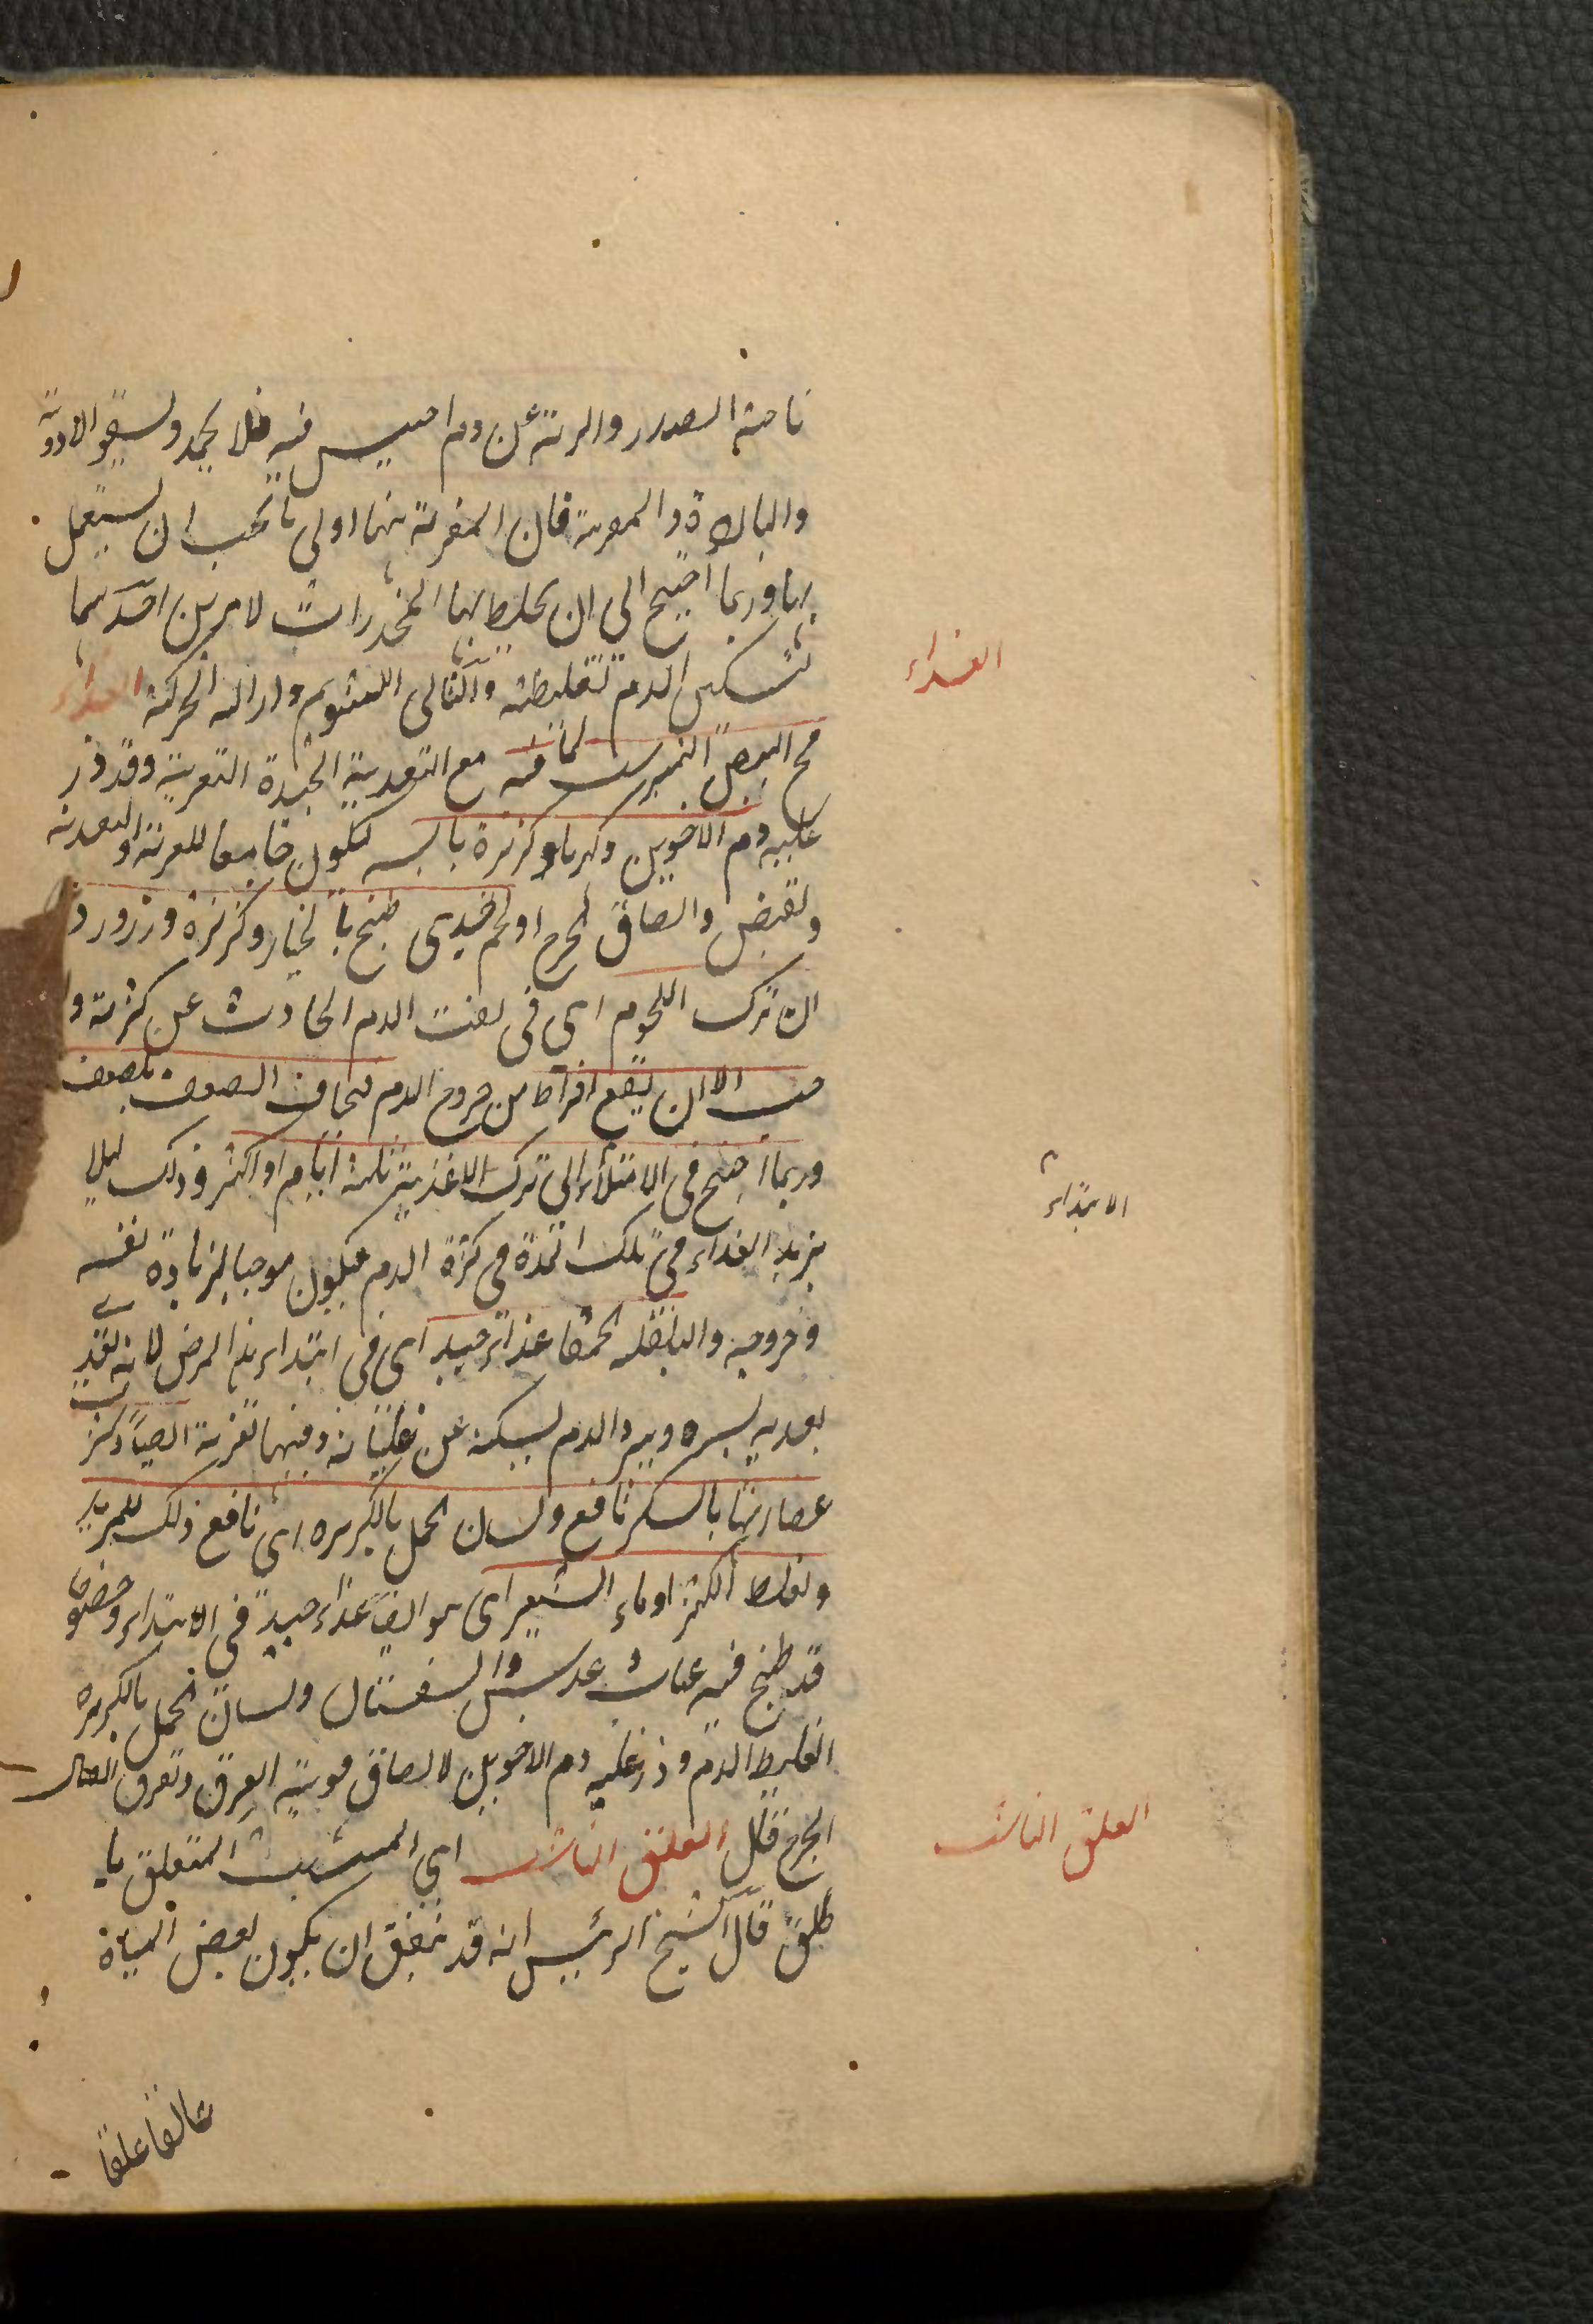 ناحية الصدر والرية عن دم احتبس فيه فلا يجمد ولسقي الادوية
والباردة والمغرية فان المغرية منها اولى ما يجب ان يستعمل
بها وربما احتيج الى ان يخلط بها المخدرات لامرين احدهما
تسكين الدم تغليظه والثانى التنويم وازالة الحركة الغذاء
مح البيض النيمبرشت لما فيه مع التغذية الجيدة التغرية وقد ذر
عليه دم الاخوين وكهربا وكزبرة يابسة ليكون جامعا للتغرية والتغذية
وتقبض والصاق الجرح او لحم الجدى طبخ بالخيار وكزبرة وزرورد
ان ترك اللحوم اى فى نفث الدم الحادث عن كثرته
الا ان يقع افراط من خروج الدم فيخاف الضعف
وربما احتيج فى الامتلاء الى ترك الاغذية ثلثة ايام او اكثر وذلك ليلا
يزيد الغذاء فى تلك المدة فى كثرة الدم فيكون موجبا لزيادة نفثه
وخروجه والبقلة الحمقا غذاء جيد اى فى ابتداء هذا المرض لانه
يسيره ويبرد الدم ليسكنه عن غليانه وفيها تغرية ايضا وكذا
عصارتها بالسكر نافع ولسان الحمل بالكزبرة اى نافع ذلك للتبريد
وتغليظ اكثر او ماء الشعير اى هو ايضا غذاء جيد فى الابتداء وخصوصا
قد طبخ فيه عناب وعدس والسفستان ولسان الحمل بالكزبرة
لتغليظ الدم وذر عليه دم الاخوين لالصاق فوهة العرق وتفرق اتصال
الجرح قال العلق الناشب اى المتشبث المتعلق بالـ
حلق قال الشيخ الرئيس انه قد يتفق ان يكون بعض المياه
الغذاء
الابتداء
العلق الناشب
عالقا علقا